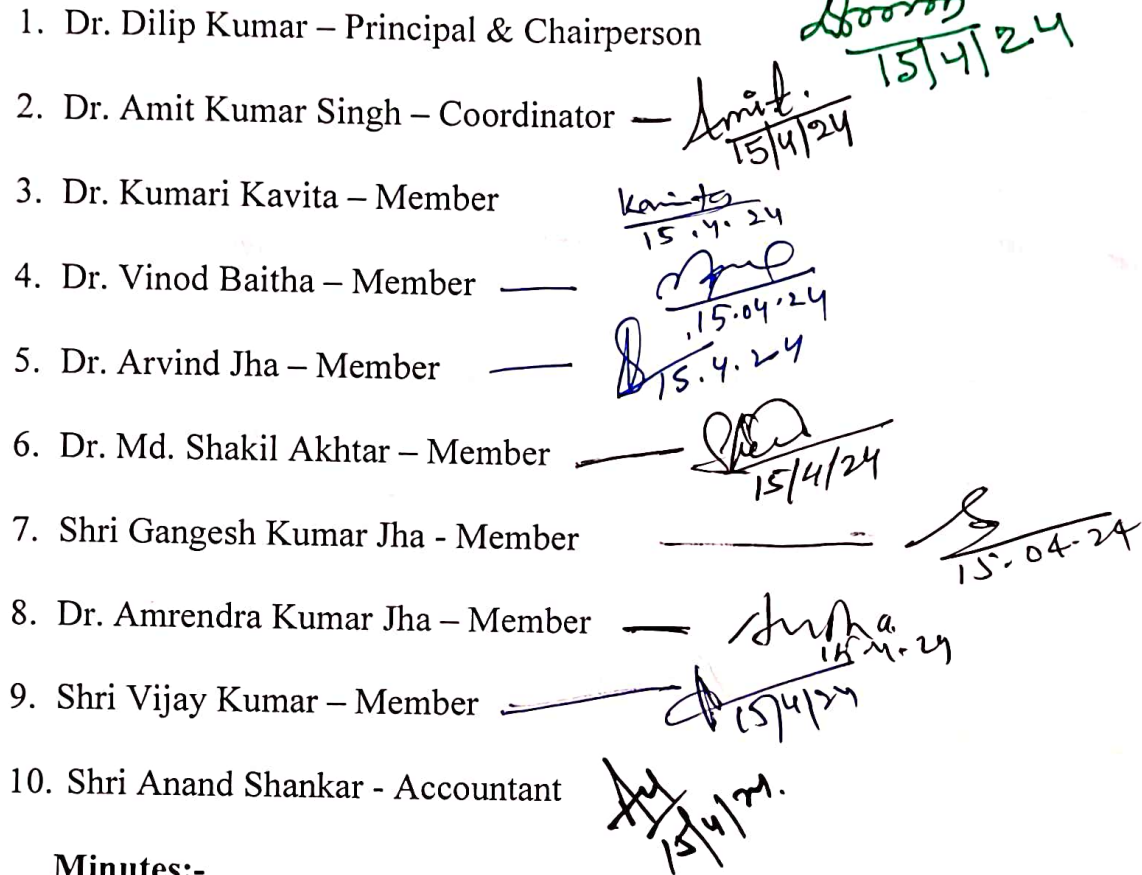 1. Dr. Dilip Kumar – Principal & Chairperson
15/4/24
2. Dr. Amit Kumar Singh – Coordinator — Amit.
15/4/24
3. Dr. Kumari Kavita – Member Kavita
15.4.24
4. Dr. Vinod Baitha – Member —
15.04.24
5. Dr. Arvind Jha – Member —
15.4.24
6. Dr. Md. Shakil Akhtar – Member —
15/4/24
7. Shri Gangesh Kumar Jha - Member —
15.04-24
8. Dr. Amrendra Kumar Jha – Member —
15.4.24
9. Shri Vijay Kumar – Member —
15/4/24
10. Shri Anand Shankar - Accountant
15/4/24.
Minutes:-